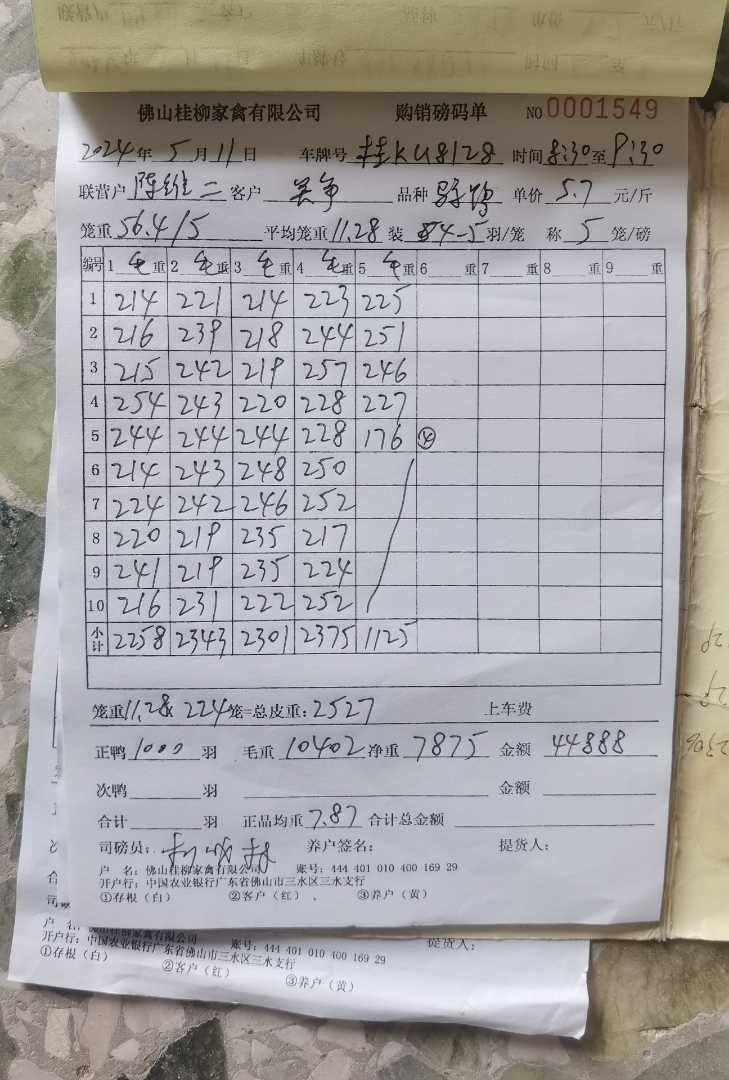 佛山桂柳家禽有限公司 购销磅码单 NO 0001549
2024年 5月11日 车牌号 桂KU8128 时间 8:30至9:30
联营户 陈维二 客户 吴争 品种 单价 5.7 元/斤
笼重 56.4/5 平均笼重 11.28 装 4-5羽/笼 称 5 笼/磅
编号 1毛重 2毛重 3毛重 4毛重 5毛重 6 重 7 重 8 重 9 重
1 214 221 214 223 225
2 216 239 218 244 251
3 215 242 219 257 246
4 254 243 220 228 227
5 244 244 244 228 176 ④
6 214 243 248 250
7 224 242 246 252
8 220 219 235 217
9 241 219 235 224
10 216 231 222 252
小计 2258 2343 2301 2375 1125
笼重11.28x 224笼=总皮重:2527 上车费
正鸭 1000 羽 毛重 10402 净重 7875 金额 44888
次鸭 羽 金额
合计 羽 正品均重 7.87 合计总金额
司磅员: 养户签名: 提货人:
户 名: 佛山桂柳家禽有限公司 账号: 444 401 010 400 169 29
开户行: 中国农业银行广东省佛山市三水区三水支行
①存根(白) ②客户(红) ③养户(黄)
提货人:
户 名: 佛山桂柳家禽有限公司 账号: 444 401 010 400 169 29
开户行: 中国农业银行广东省佛山市三水区三水支行
①存根(白) ②客户(红) ③养户(黄)